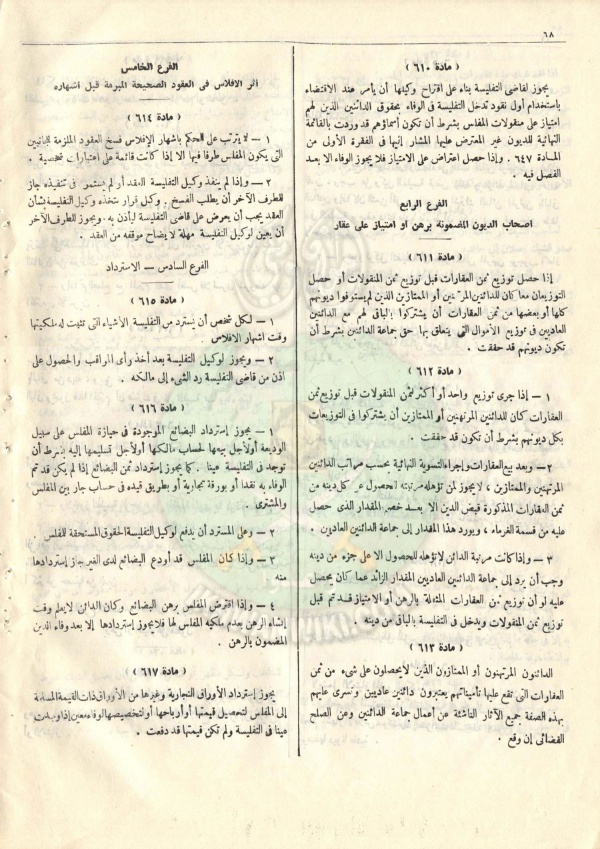 ٦٨
( مادة ٦١٠ )
يجوز لقاضى التفليسة بناء على اقتراح وكيلها أن يأمر عند الاقتضاء
باستخدام أول نقود تدخل التفليسة فى الوفاء بحقوق الدائنين الذين لهم
امتياز على منقولات المفلس بشرط أن تكون أسماؤهم قد وردت بالقائمة
النهائية للديون غير المعترض عليها المشار إليها فى الفقرة الأولى من
المادة ٦٤٧ . وإذا حصل اعتراض على الامتياز فلا يجوز الوفاء الا بعد
الفصل فيه .
الفرع الرابع
اصحاب الديون المضمونه برهن او امتياز على عقار
( مادة ٦١١ )
إذا حصل توزيع ثمن العقارات قبل توزيع ثمن المنقولات أو حصل
التوزيعان معا كان للدائنين المرتهنين أو الممتازين الذين لم يستوفوا ديونهم
كلها أو بعضها من ثمن العقارات أن يشتركوا بالباقى لهم مع الدائنين
العاديين فى توزيع الأموال التى يتعلق بها حق جماعة الدائنين بشرط أن
تكون ديونهم قد حققت .
( مادة ٦١٢ )
١ – إذا جرى توزيع واحد أو أكثر لثمن المنقولات قبل توزيع ثمن
العقارات كان للدائنين المرتهنين أو الممتازين أن يشتركوا فى التوزيعات
بكل ديونهم بشرط أن تكون قد حققت .
٢ – وبعد بيع العقارات وإجراء التسوية النهائية بحسب مراتب الدائنين
المرتهنين والممتازين ، لا يجوز لمن تؤهله مرتبته الحصول على كل دينه من
ثمن العقارات المذكورة قبض الدين الا بعد خصم المقدار الذى حصل
عليه من قسمة الغرماء ، ويورد هذا المقدار إلى جماعة الدائنين العاديين .
٣ – وإذا كانت مرتبة الدائن لا تؤهله للحصول الا على جزء من دينه
وجب أن يرد إلى جماعة الدائنين العاديين المقدار الزائد عما كان يحصل
عليه لو أن توزيع ثمن العقارات المثقلة بالرهن أو الامتياز قد تم قبل
توزيع ثمن المنقولات ويدخل فى التفليسة بالباقى من دينه .
( مادة ٦١٣ )
الدائنون المرتهنون أو الممتازون الذين لا يحصلون على شىء من ثمن
العقارات التى تقع عليها تأميناتهم يعتبرون دائنين عاديين وتسرى عليهم
بهذه الصفة جميع الآثار الناشئة عن أعمال جماعة الدائنين وعن الصلح
القضائى إن وقع .
الفرع الخامس
اثر الافلاس فى العقود الصحيحة المبرمة قبل اشهاره
( مادة ٦١٤ )
١ – لا يترتب على الحكم باشهار الإفلاس فسخ العقود الملزمة للجانبين
التى يكون المفلس طرفا فيها الا إذا كانت قائمة على إعتبارات شخصية .
٢ – وإذا لم ينفذ وكيل التفليسة العقد أو لم يستمر فى تنفيذه جاز
للطرف الآخر أن يطلب الفسخ . وكل قرار يتخذه وكيل التفليسة بشأن
العقد يجب أن يعرض على قاضى التفليسة ليأذن به . ويجوز للطرف الآخر
أن يعين لوكيل التفليسة مهلة لايضاح موقفه من العقد .
الفرع السادس – الاسترداد
( مادة ٦١٥ )
١ – لكل شخص أن يسترد من التفليسة الأشياء التى تثبت له ملكيتها
وقت اشهار الافلاس .
٢ – ويجوز لوكيل التفليسة بعد أخذ رأى المراقب والحصول على
اذن من قاضى التفليسة رد الشىء إلى مالكه .
( مادة ٦١٦ )
١ – يجوز إسترداد البضائع الموجودة فى حيازة المفلس على سبيل
الوديعة أو لأجل بيعها لحساب مالكها أو لأجل تسليمها إليه بشرط أن
توجد فى التفليسة عينا . كما يجوز إسترداد ثمن البضائع إذا لم يكن قد تم
الوفاء به نقدا أو بورقة تجارية أو بطريق قيده فى حساب جار بين المفلس
والمشترى .
٢ – وعلى المسترد أن يدفع لوكيل التفليسة الحقوق المستحقة للمفلس .
٣ – وإذا كان المفلس قد أودع البضائع لدى الغير جاز إستردادها
منه
٤ – وإذا اقترض المفلس برهن البضائع وكان الدائن لا يعلم وقت
إنشاء الرهن بعدم ملكية المفلس لها فلا يجوز إستردادها إلا بعد وفاء الدين
المضمون بالرهن .
( مادة ٦١٧ )
يجوز إسترداد الأوراق التجارية وغيرها من الأوراق ذات القيمة المسلمة
إلى المفلس لتحصيل قيمتها أو أرباحها أو لتخصيصها لوفاء معين إذا وجدت
عينا فى التفليسة ولم تكن قيمتها قد دفعت .